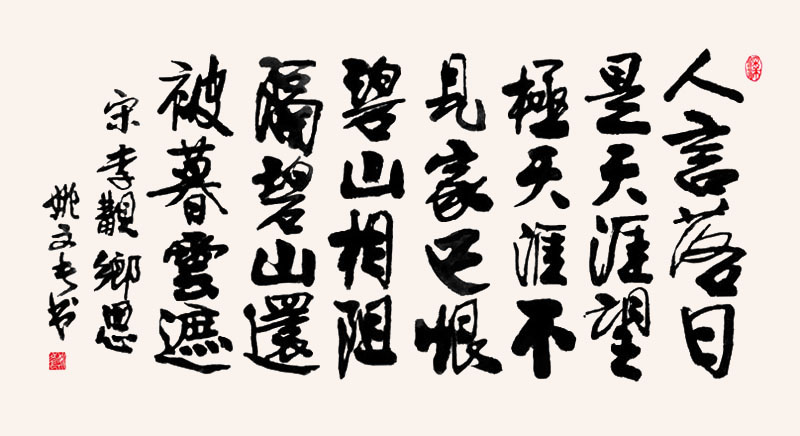 人言落日
是天涯望
極天涯不
見家已恨
碧山相阻
隔碧山還
被暮雲遮
宋李覯鄉思
姚文长书